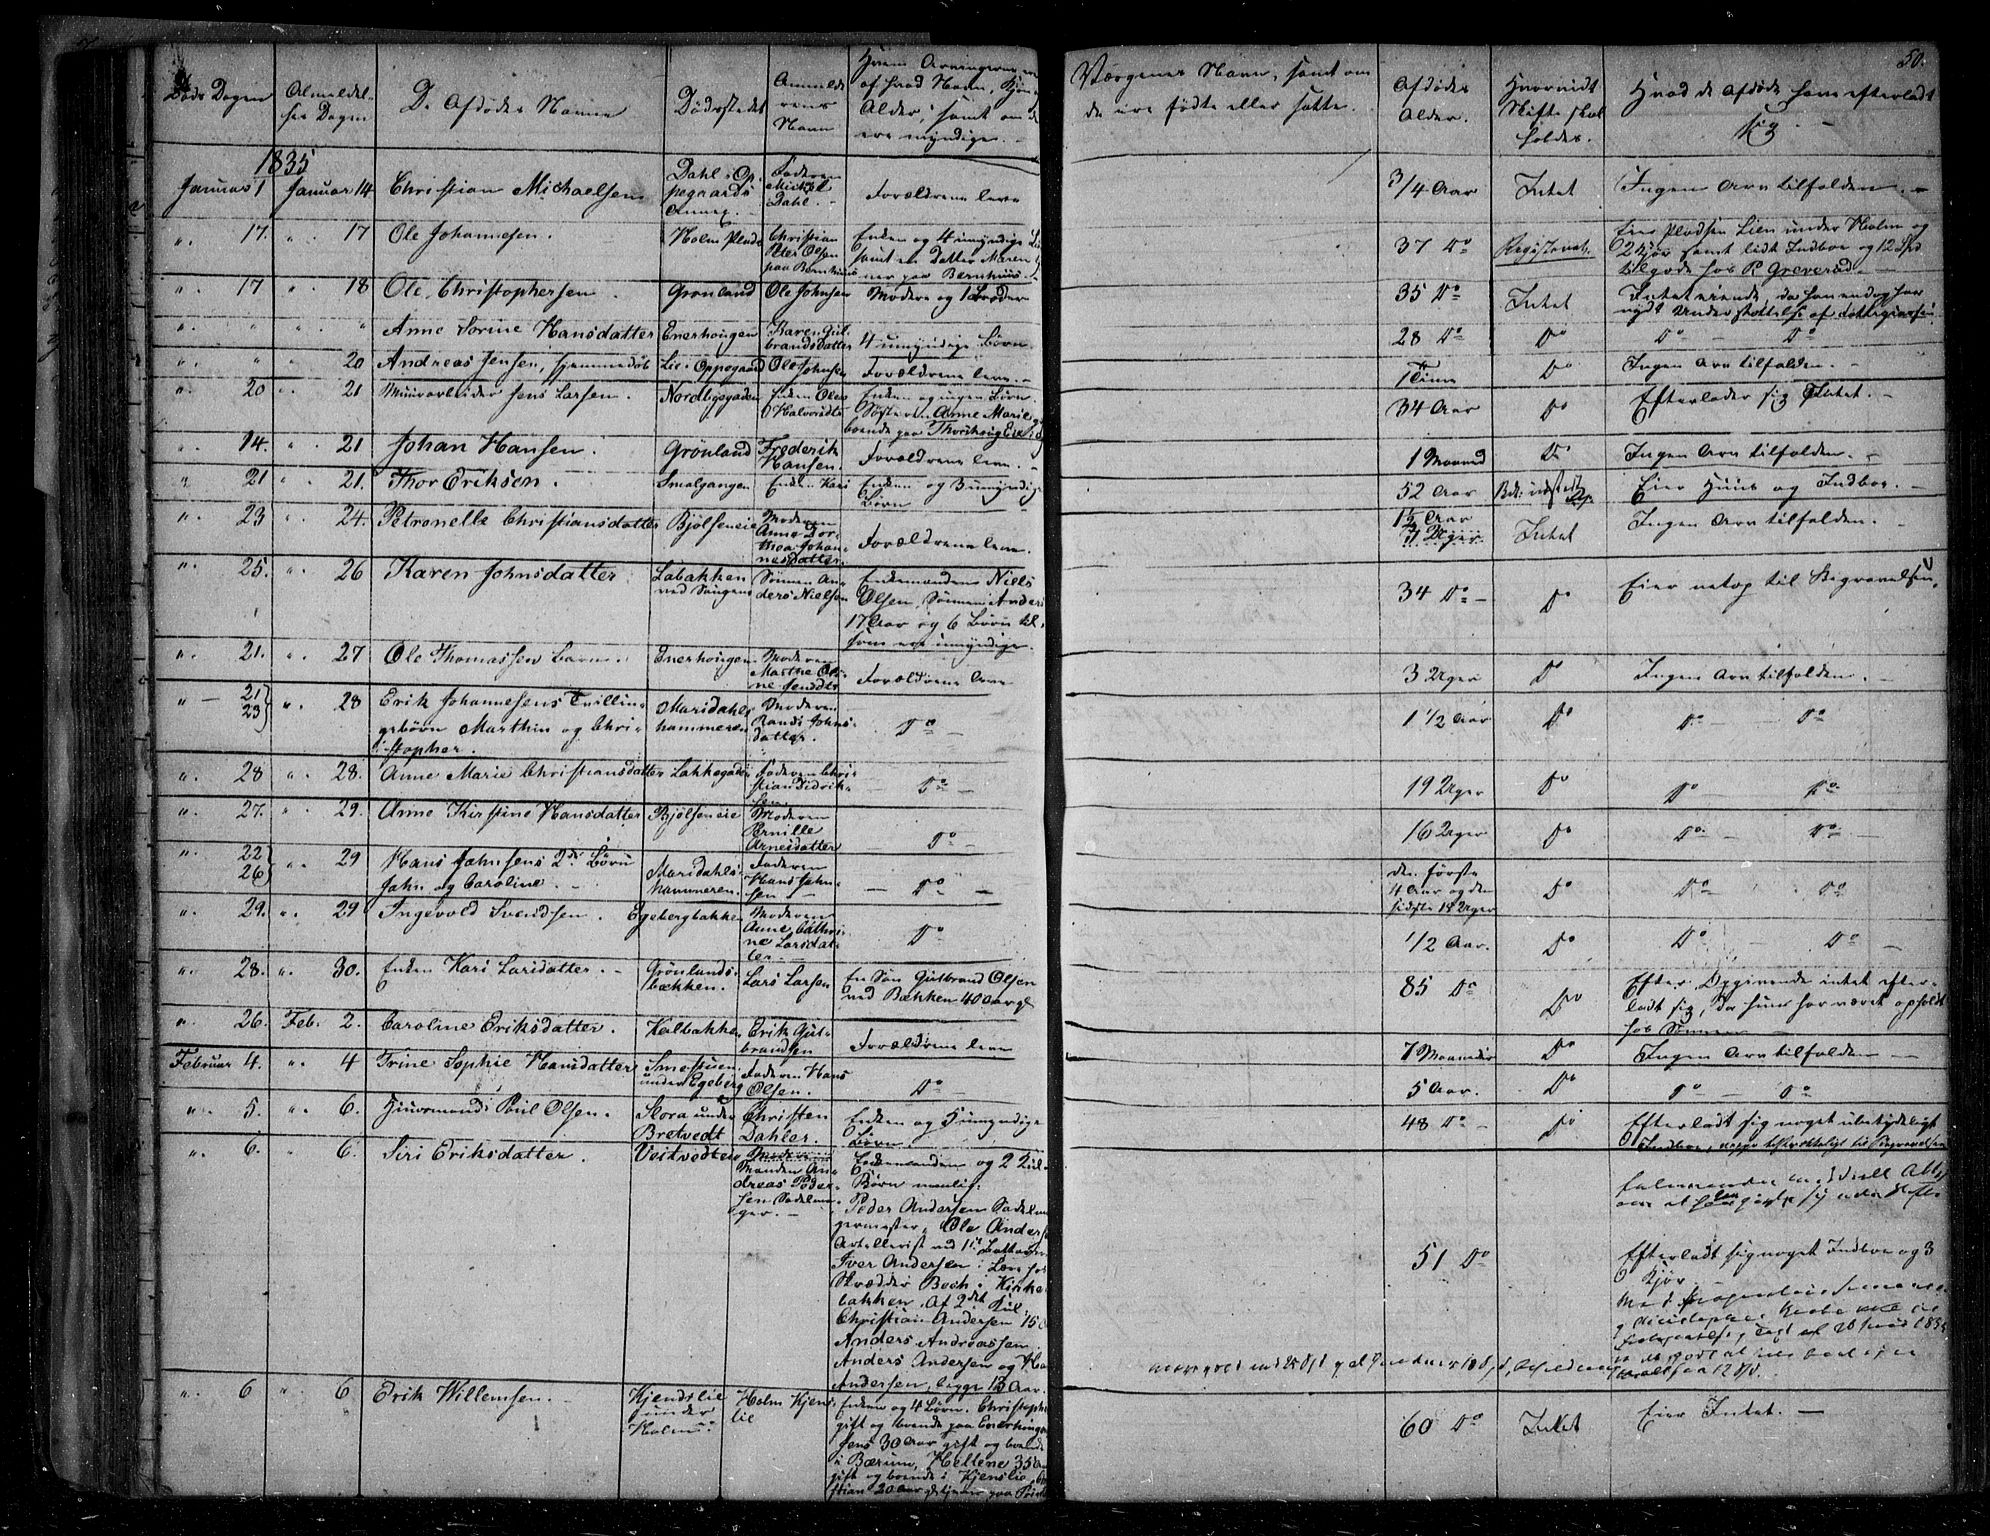 50.
Døds Dagen
Anmeldelses Dagen
De Afdødes Navne
Dødsstedet
Anmelderens Navn
Hvem Arvingerne ere
af hvad Navn, Kjøn
Alder, samt om de
ere myndige.
Værgernes Navn, samt om
de ere fødte eller satte.
Afdødes Alder.
Hvorvidt Skifte skal holdes.
Hvad de Afdøde have efterladt sig
1835
Januar 1 Januar 14 Christian Michaelsen Dahl i Oppegaards Annex. Faderen Michel Dahl. Forældrene leve 3/4 Aar Intet Ingen Arv tilfalden.
" 17. " 17 Ole Johannesen. Holm Plads Christian Peter Olsen paa Bernhuus Enken og 4 umyndige samt en Datter Maren paa Bernhuus. 37 Do Registeret. Eier Pladsen Lien under Holm og
2 Kjør samt lidt Indboe og 12 Spd
tilgode hos P. Greverud
" 17 " 18 Ole Christophersen. Grønland Ole Johnsen Modere og 1 Broder 35 Do Intet Intet eiende, da han endog har
nydt Understøttelse af
" " " " Anne Sorine Hansdatter Enerhougen Karen Gulbrandsdatter 4 umyndige Børn 28 Do Do Do Do
" " 20 Andreas Jensen, hjemmedøb Lie Oppegaard Ole Johnsen Forældrene leve. 1 Time Do Ingen Arv tilfalden.
" 20 " 21 Muurarbeider Jens Larsen. Nordbygaden Enken Olea Halvorsdtr Enken og ingen Børn
Søsteren Anne Marie
boende paa 34 Aar Do Efterlader sig Intet.
" 14. " 21 Johan Hansen. Grønland Frederik Hansen. Forældrene leve. 1 Maaned Do Ingen Arv tilfalden.
" 21 " 21. Thor Eriksen. Smalgangen Enken Kari Enken og 3 umyndige Børn 52 Aar Eier Huus og Indboe.
" 23 " 24. Petronelle Christiansdatter Bjølseneie Moderen Anne Dorthea Johannesdatter Forældrene leve. 1 1/2 Aar Intet Ingen Arv tilfalden.
" 25. " 26 Karen Johnsdatter Labakken ved Saugene Sønnen Anders Nielsen Enkemanden Niels
Olsen, Sønnen Anders
17 Aar og 6 Børn til
som ere umyndige. 34 Do Do Eier netop til Begravelsen.
" 21. " 27 Ole Thomassens Barn. Enerhougen Moderen Marthe Oline Jensdtr Forældrene leve 3 Uger Do Ingen Arv tilfalden.
" 21 23 " 28 Erik Johannesens Tvillin-
gebørn Marthin og Chri-
stopher. Maridahlshammeren Moderen Randi Johnsdatter. Do 1 1/2 Aar Do Do Do
" 28 " 28. Anne Marie Christiansdatter Lakkegaden Faderen Christian Didriksen Do 19 Uger Do Do Do
" 27. " 29. Anne Kirstine Hansdatter Bjølseneie Moderen Pernille Arnesdatter Do 16 Uger Do Do Do
" 22 26 " 29 Hans Jahnsens 2de Børn
Jahn og Caroline. Maridahlshammeren. Faderen Hans Jahnsen Do den første
4 Aar og den
sidste 14 Uger Do Do Do
" 29. " 29 Ingevold Svendsen. Egebergbakken Moderen Anne Cathrine Larsdatter. Do 1/2 Aar. Do Do Do
" 28. " 30. Enken Kari Larsdatter. Grønlandsbækken. Lars Larsen En Søn Gulbrand Olsen
ved Bækken 40 Aar gl 85 Do Do Efter Opgivende intet efter-
ladt sig, da hun har været opholdt
hos Sønnen
" 26. Feb. 2. Caroline Eriksdatter. Kalbakken Erik Gulbrandsen Forældrene leve 7 Maaneder Do Ingen Arv tilfalden
Februar 4. " 4 Trine Sophie Hansdatter Smestuen under Egeberg Faderen Hans Olsen. Do 5 Aar. Do Do Do
" 5. " 6. Huusmand Poul Olsen. Flora under Bretvedt Christen Dahler. Enken og 5 umyndige Børn. 48 Do Do Efterladt sig noget ubetydeligt
Indboe, neppe tilstrækkeligt til Begravelsen
" 6. " 6. Siri Eriksdatter. Veitvedten Manden Andreas Pedersen Sadelmager. Enkemanden og 2 Kul
Børn nemlig:
Peder Andersen Sadelma
germester, Ole Anders
Artellerist ved
Iver Andersen i Lære hos
Skrædder Bech i Kirke
bakken. Af 2det Kul:
Christian Andersen 15
Anders Andreassen
Anders Andersen og
Andersen, begge 13 Aar. 51 Do Efterladt sig noget Indboe og 3
Kjør.
" 6 " 6 Erik Willemsen. Kjendslie under Holm. Holm Kjenslie Enken og 4 Børn. Christoph
gift og boende paa Enerhougen
Jens 30 Aar gift og boende
i Bærum, Hellene 35
gift og boende i Kjenslie,
stian 20 Aar tjener paa 60 Do Intet Eier Intet.